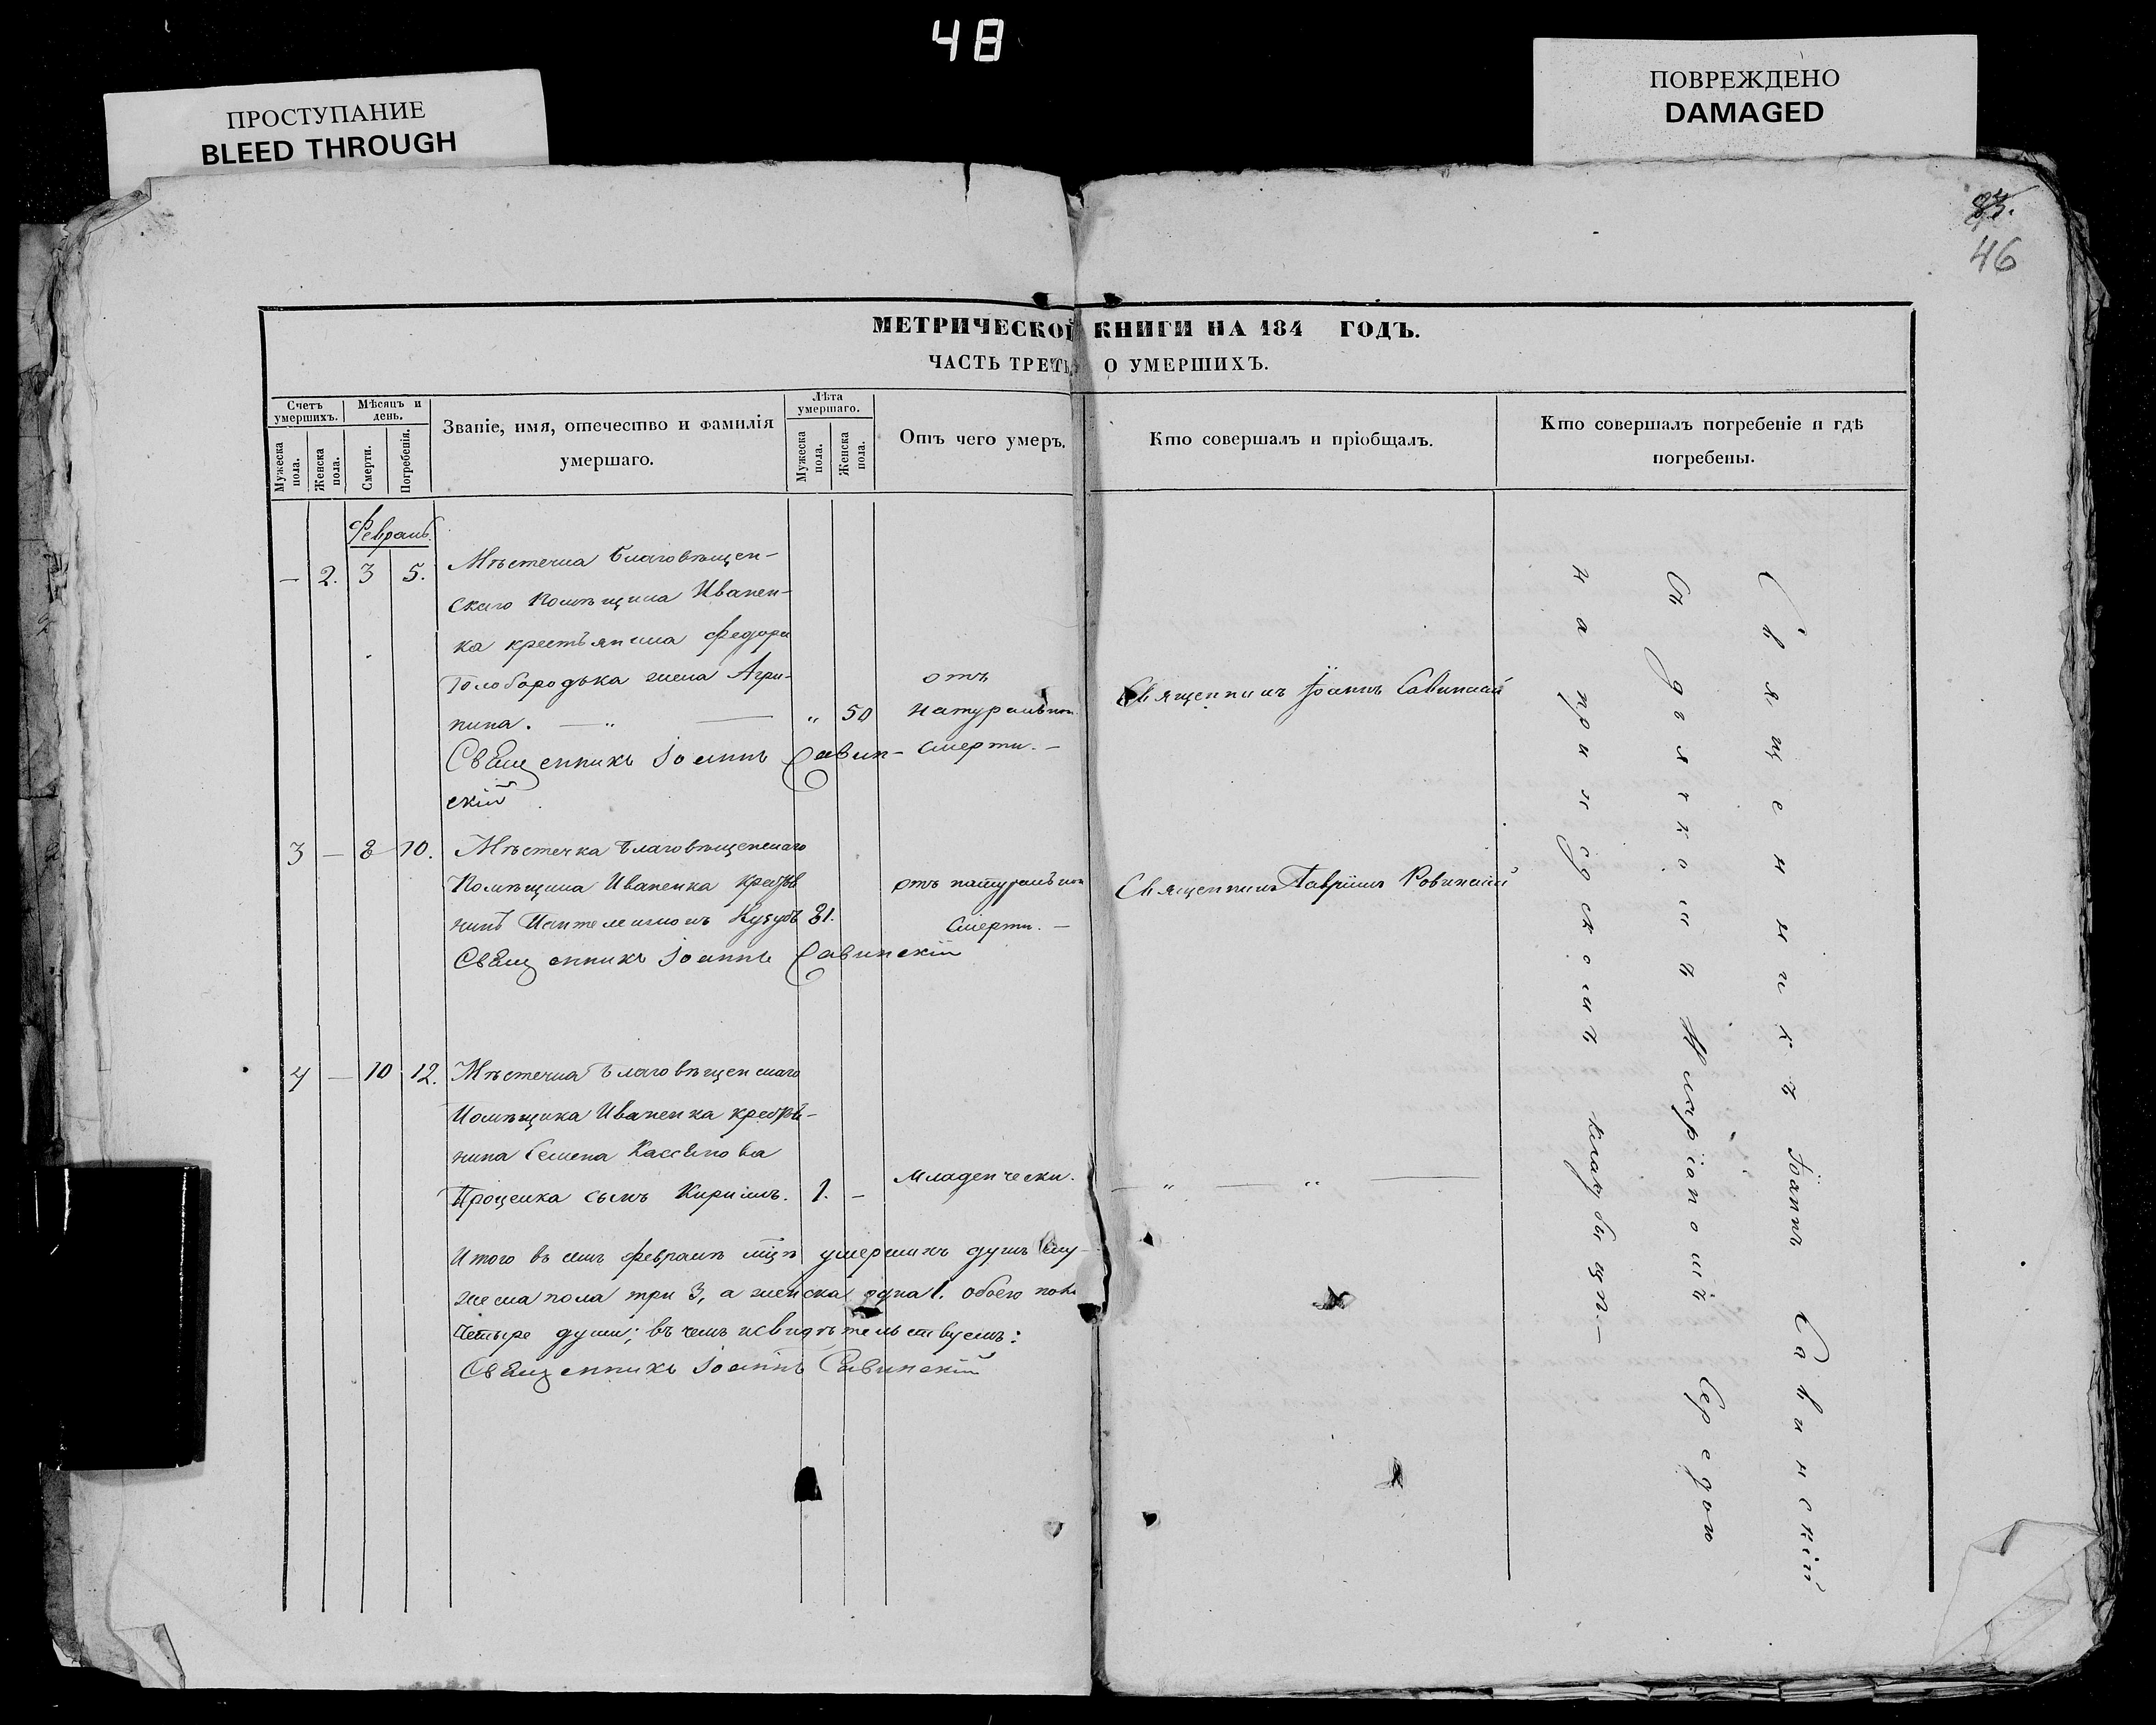 48
ПРОСТУПАНИЕ
BLEED THROUGH
ПОВРЕЖДЕНО
DAMAGED
83.
46
МЕТРИЧЕСКОЙ КНИГИ НА 184 ГОДЪ.
ЧАСТЬ ТРЕТЬ О УМЕРШИХЪ.
Счетъ умершихъ.
Мужеска пола.
Женска пола.
Мѣсяцъ и день.
Смерти.
Погребенія.
Званіе, имя, отечество и фамилія умершаго.
Лѣта умершаго.
Мужеска пола.
Женска пола.
Отъ чего умеръ.
Кто совершалъ и пріобщалъ.
Кто совершалъ погребеніе и гдѣ погребены.
Февраль.
— 2. 3 5.
Мѣстечка Благовѣщен-
скаго Помѣщика Иванен-
ка крестьянина Федора
Голобородька жена Агри-
пина. — „ — „ 50
отъ
натуральной
смерти. —
Священникъ Іоаннъ Савинскій
Священникъ Іоаннъ Савин-
скій
3 — 8 10.
Мѣстечка Благовѣщенскаго
Помѣщика Иваненка крестья
нинъ Пантелеимонъ 81.
отъ натуральной
смерти. —
Священникъ Гавріилъ Ровинскій
Священникъ Іоаннъ Савинскій
4 — 10 12.
Мѣстечка Благовѣщенскаго
Помѣщика Иваненка крестья-
нина Семена Касьянова
Проценка сынъ Кирилъ. 1. —
Младенчески.
— „ — „ —
Итого въ семъ февралѣ мцѣ умершихъ душъ му-
жеска пола три 3, а женска одна 1. обоего пола
четыре души; въ чемъ и свидѣтельствуемъ:
Священникъ Іоаннъ Савинскій
Священникъ Іоаннъ Савинскій
съ дьячкомъ Иларіономъ Середою
на приходскомъ кладбищѣ —